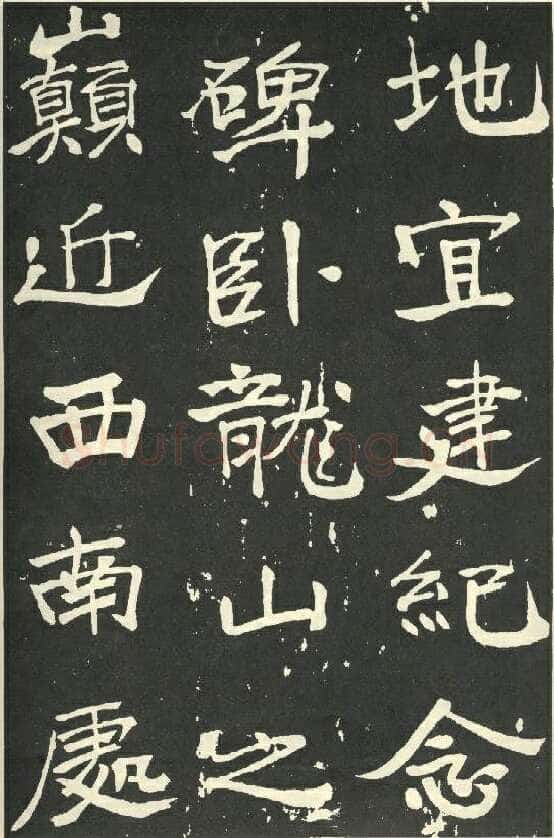 地宜建紀念
碑卧龍山之
巔近西南處
shufawang.cn